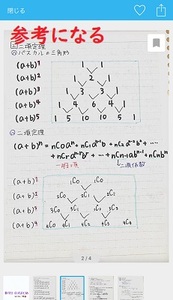 閉じる
参考になる
二項定理
パスカルの三角形
(a+b)¹ 1 1
(a+b)² 1 2 1
(a+b)³ 1 3 3 1
(a+b)⁴ 1 4 6 4 1
(a+b)⁵ 1 5 10 10 5 1
二項定理
(a+b)ⁿ = nC₀aⁿ + nC₁aⁿ⁻¹b + nC₂aⁿ⁻²b² + ……
+ nCᵣaⁿ⁻ʳbʳ + … + nCₙ₋₁abⁿ⁻¹ + nCₙbⁿ
一般項
二項係数
(a+b)¹ ₁C₀ ₁C₁
(a+b)² ₂C₀ ₂C₁ ₂C₂
(a+b)³ ₃C₀ ₃C₁ ₃C₂ ₃C₃
(a+b)⁴ ₄C₀ ₄C₁ ₄C₂ ₄C₃ ₄C₄
3/4